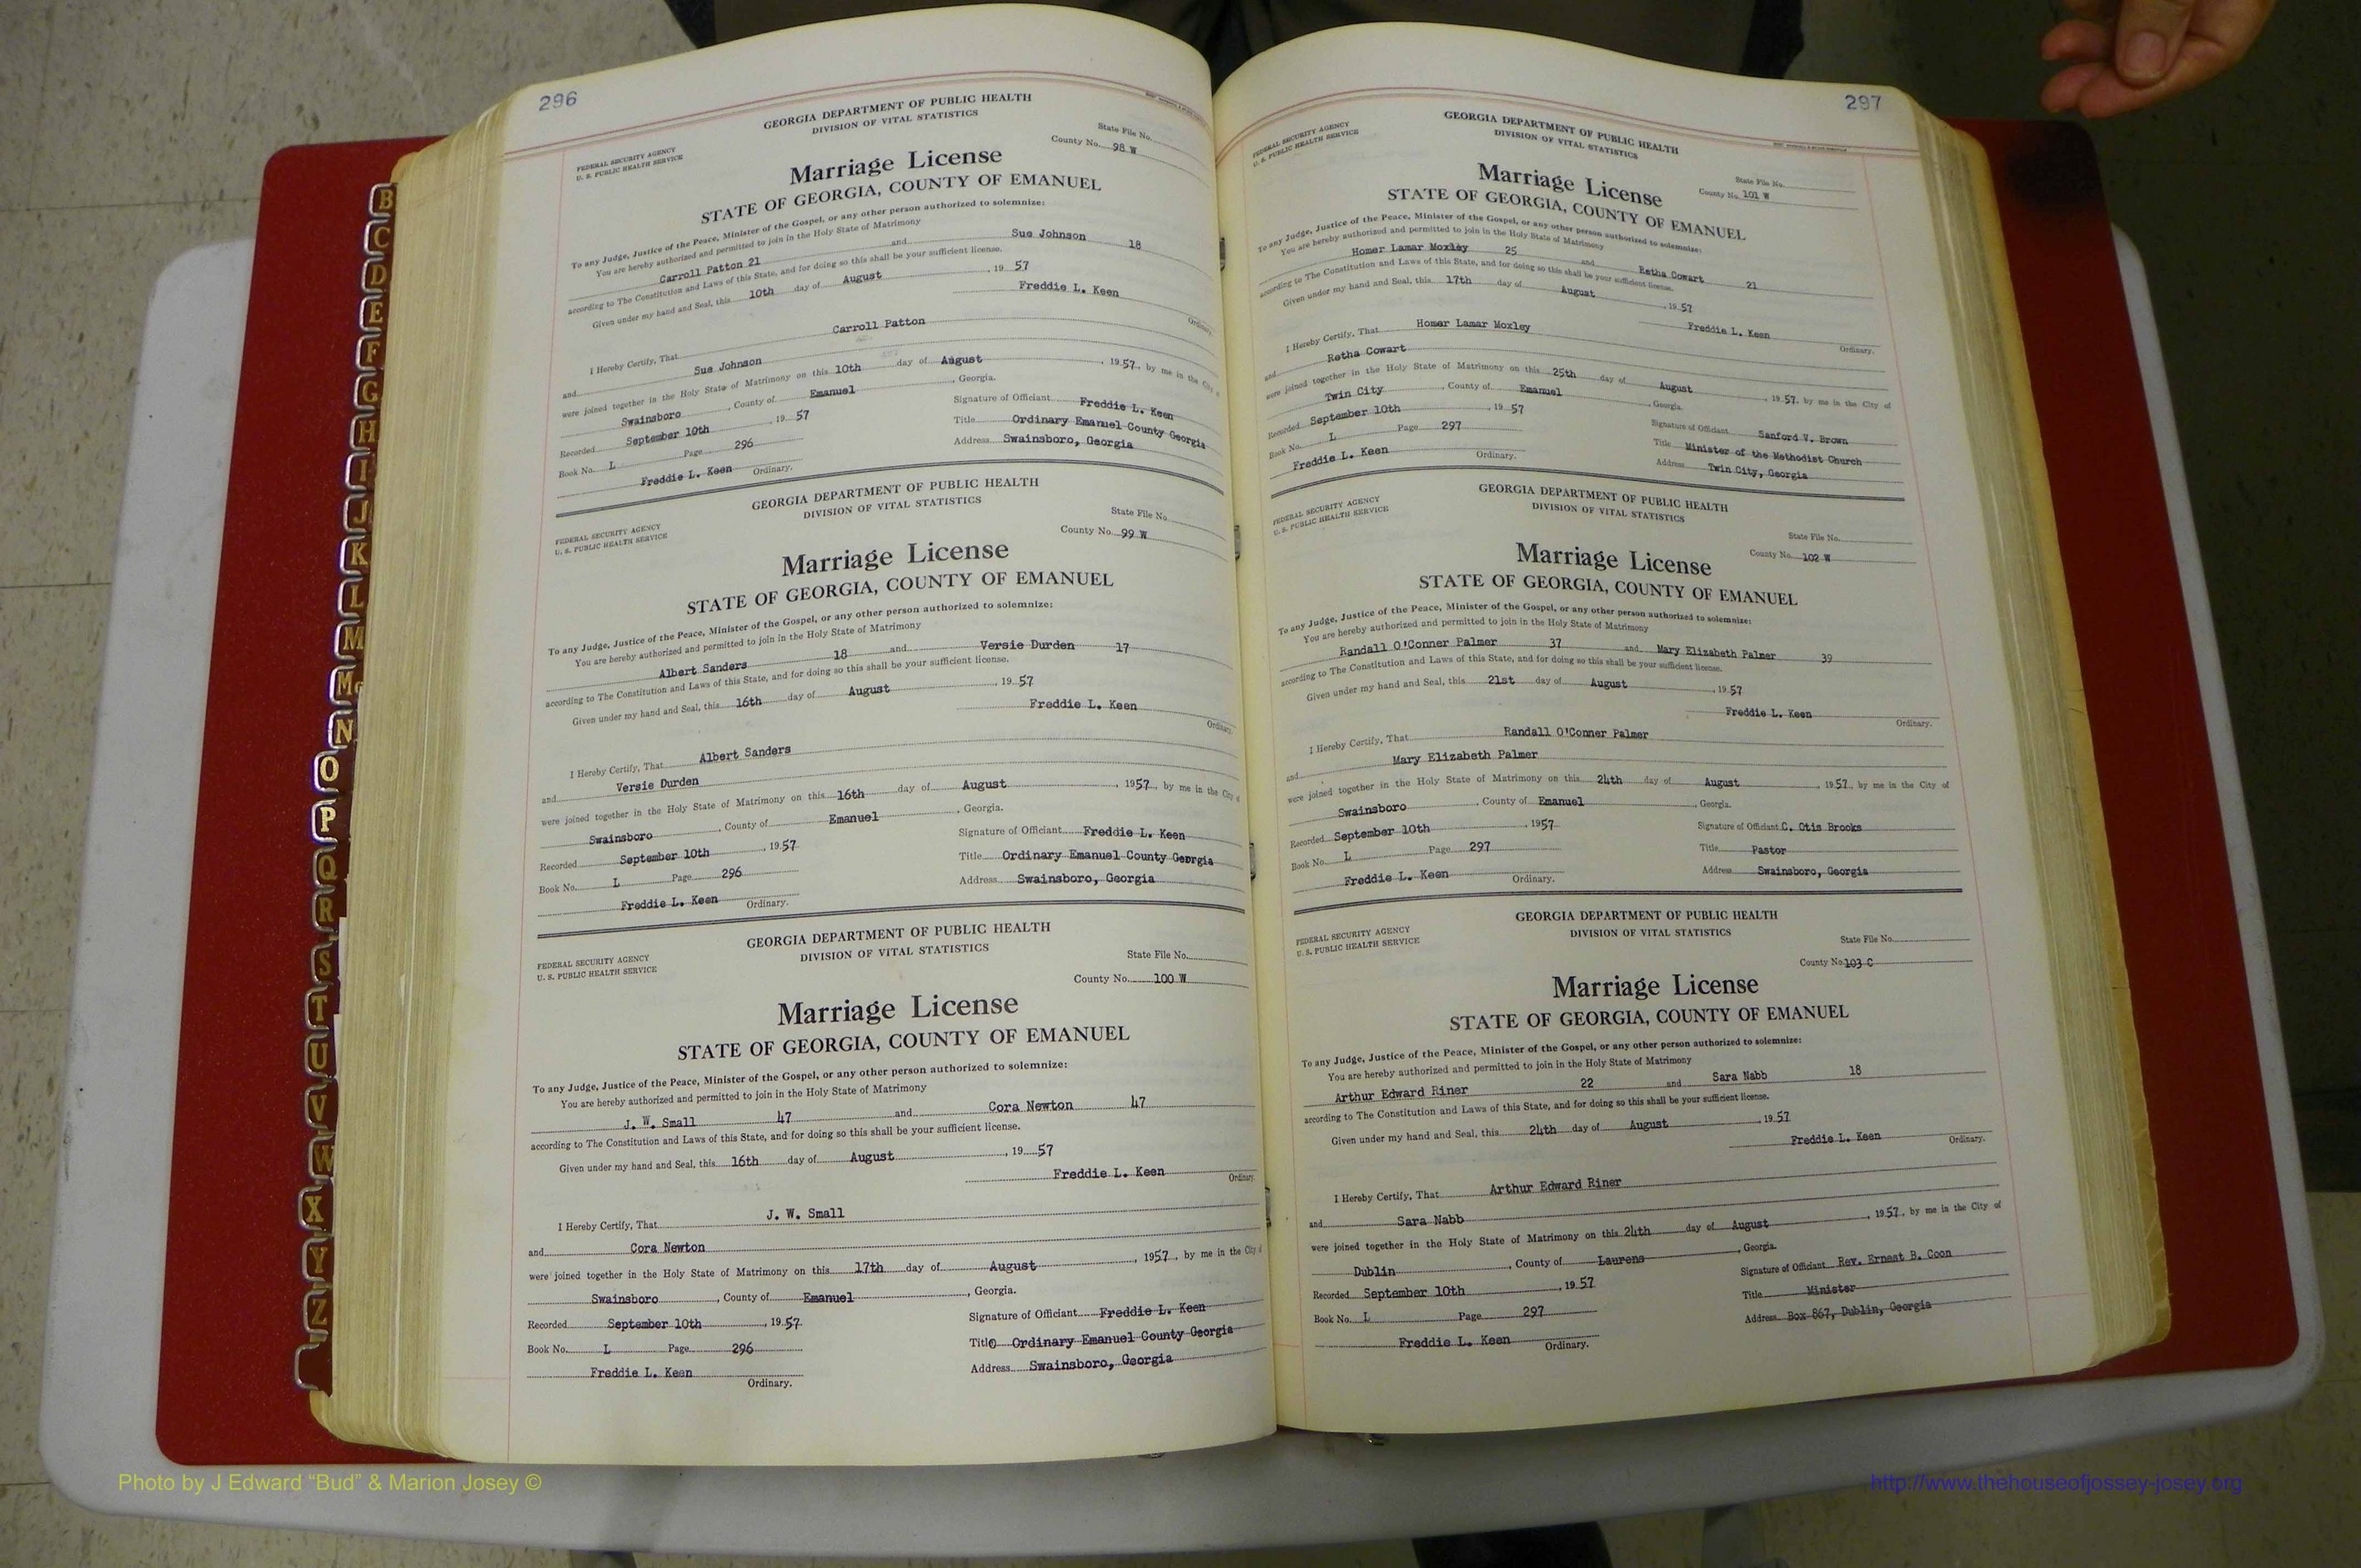 296
GEORGIA DEPARTMENT OF PUBLIC HEALTH
DIVISION OF VITAL STATISTICS
FEDERAL SECURITY AGENCY
U. S. PUBLIC HEALTH SERVICE
State File No.
County No. 98 W
Marriage License
STATE OF GEORGIA, COUNTY OF EMANUEL
To any Judge, Justice of the Peace, Minister of the Gospel, or any other person authorized to solemnize:
You are hereby authorized and permitted to join in the Holy State of Matrimony
Carroll Patton 21 and Sue Johnson 18
according to The Constitution and Laws of this State, and for doing so this shall be your sufficient license.
Given under my hand and Seal, this 10th day of August, 19 57
Freddie L. Keen
Ordinary.
I Hereby Certify, That Carroll Patton
and Sue Johnson
were joined together in the Holy State of Matrimony on this 10th day of August, 19 57, by me in the City
Swainsboro, County of Emanuel, Georgia.
Recorded September 10th, 19 57
Book No. L Page 296
Freddie L. Keen Ordinary.
Signature of Officiant Freddie L. Keen
Title Ordinary Emanuel County Georgia
Address Swainsboro, Georgia
GEORGIA DEPARTMENT OF PUBLIC HEALTH
DIVISION OF VITAL STATISTICS
FEDERAL SECURITY AGENCY
U. S. PUBLIC HEALTH SERVICE
State File No.
County No. 99 W
Marriage License
STATE OF GEORGIA, COUNTY OF EMANUEL
To any Judge, Justice of the Peace, Minister of the Gospel, or any other person authorized to solemnize:
You are hereby authorized and permitted to join in the Holy State of Matrimony
Albert Sanders 18 and Versie Durden 17
according to The Constitution and Laws of this State, and for doing so this shall be your sufficient license.
Given under my hand and Seal, this 16th day of August, 19 57
Freddie L. Keen
Ordinary.
I Hereby Certify, That Albert Sanders
and Versie Durden
were joined together in the Holy State of Matrimony on this 16th day of August, 1957, by me in the City
Swainsboro, County of Emanuel, Georgia.
Recorded September 10th, 19 57
Book No. L Page 296
Freddie L. Keen Ordinary.
Signature of Officiant Freddie L. Keen
Title Ordinary Emanuel County Georgia
Address Swainsboro, Georgia
GEORGIA DEPARTMENT OF PUBLIC HEALTH
DIVISION OF VITAL STATISTICS
FEDERAL SECURITY AGENCY
U. S. PUBLIC HEALTH SERVICE
State File No.
County No. 100 W
Marriage License
STATE OF GEORGIA, COUNTY OF EMANUEL
To any Judge, Justice of the Peace, Minister of the Gospel, or any other person authorized to solemnize:
You are hereby authorized and permitted to join in the Holy State of Matrimony
J. W. Small 47 and Cora Newton 47
according to The Constitution and Laws of this State, and for doing so this shall be your sufficient license.
Given under my hand and Seal, this 16th day of August, 19 57
Freddie L. Keen
Ordinary.
I Hereby Certify, That J. W. Small
and Cora Newton
were joined together in the Holy State of Matrimony on this 17th day of August, 1957, by me in the City
Swainsboro, County of Emanuel, Georgia.
Recorded September 10th, 19 57
Book No. L Page 296
Freddie L. Keen
Ordinary.
Signature of Officiant Freddie L. Keen
Title Ordinary Emanuel County Georgia
Address Swainsboro, Georgia
297
GEORGIA DEPARTMENT OF PUBLIC HEALTH
DIVISION OF VITAL STATISTICS
FEDERAL SECURITY AGENCY
U. S. PUBLIC HEALTH SERVICE
State File No.
County No. 101 W
Marriage License
STATE OF GEORGIA, COUNTY OF EMANUEL
To any Judge, Justice of the Peace, Minister of the Gospel, or any other person authorized to solemnize:
You are hereby authorized and permitted to join in the Holy State of Matrimony
Homer Lamar Moxley 25 and Retha Cowart 21
according to The Constitution and Laws of this State, and for doing so this shall be your sufficient license.
Given under my hand and Seal, this 17th day of August, 19 57
Freddie L. Keen
Ordinary.
I Hereby Certify, That Homer Lamar Moxley
and Retha Cowart
were joined together in the Holy State of Matrimony on this 25th day of August, 19 57, by me in the City of
Twin City, County of Emanuel, Georgia.
Recorded September 10th, 19 57
Book No. L Page 297
Freddie L. Keen Ordinary.
Signature of Officiant Sanford V. Brown
Title Minister of the Methodist Church
Address Twin City, Georgia
GEORGIA DEPARTMENT OF PUBLIC HEALTH
DIVISION OF VITAL STATISTICS
FEDERAL SECURITY AGENCY
U. S. PUBLIC HEALTH SERVICE
State File No.
County No. 102 W
Marriage License
STATE OF GEORGIA, COUNTY OF EMANUEL
To any Judge, Justice of the Peace, Minister of the Gospel, or any other person authorized to solemnize:
You are hereby authorized and permitted to join in the Holy State of Matrimony
Randall O'Conner Palmer 37 and Mary Elizabeth Palmer 39
according to The Constitution and Laws of this State, and for doing so this shall be your sufficient license.
Given under my hand and Seal, this 21st day of August, 19 57
Freddie L. Keen
Ordinary.
I Hereby Certify, That Randall O'Conner Palmer
and Mary Elizabeth Palmer
were joined together in the Holy State of Matrimony on this 24th day of August, 1957, by me in the City of
Swainsboro, County of Emanuel, Georgia.
Recorded September 10th, 1957
Book No. L Page 297
Freddie L. Keen Ordinary.
Signature of Officiant C. Otis Brooks
Title Pastor
Address Swainsboro, Georgia
GEORGIA DEPARTMENT OF PUBLIC HEALTH
DIVISION OF VITAL STATISTICS
FEDERAL SECURITY AGENCY
U. S. PUBLIC HEALTH SERVICE
State File No.
County No. 103 C
Marriage License
STATE OF GEORGIA, COUNTY OF EMANUEL
To any Judge, Justice of the Peace, Minister of the Gospel, or any other person authorized to solemnize:
You are hereby authorized and permitted to join in the Holy State of Matrimony
Arthur Edward Riner 22 and Sara Nabb 18
according to The Constitution and Laws of this State, and for doing so this shall be your sufficient license.
Given under my hand and Seal, this 24th day of August, 19 57
Freddie L. Keen
Ordinary.
I Hereby Certify, That Arthur Edward Riner
and Sara Nabb
were joined together in the Holy State of Matrimony on this 24th day of August, 19 57, by me in the City of
Dublin, County of Laurens, Georgia.
Recorded September 10th, 19 57
Book No. L Page 297
Freddie L. Keen Ordinary.
Signature of Officiant Rev. Ernest B. Coon
Title Minister
Address Box 867, Dublin, Georgia
B
C
D
E
F
G
H
I
J
K
L
M
Mc
N
O
P
Q
R
S
T
U
V
W
X
Y
Z
Photo by J Edward “Bud” & Marion Josey ©
http://www.thehouseofjossey-josey.org